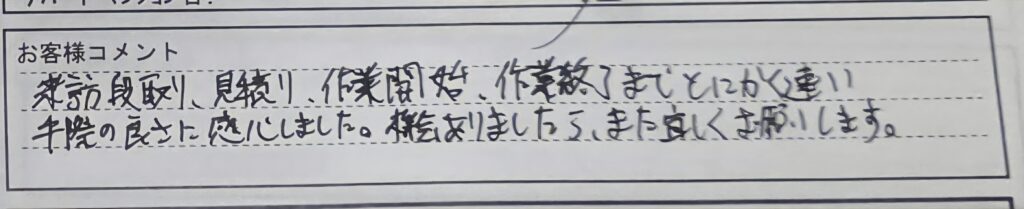 お客様コメント
来訪段取り、見積り、作業開始、作業終了までとにかく速い
手際の良さに感心しました。機会ありましたら、また宜しくお願いします。